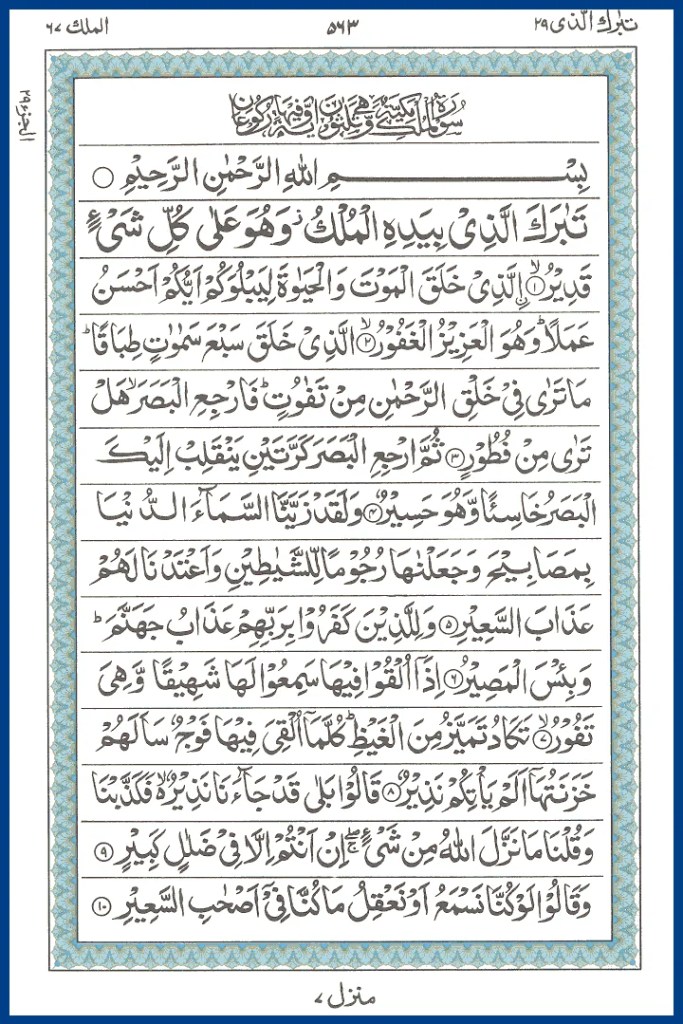 تبٰرك الّذی ٢٩
٥٦٣
الملك ٦٧
الجزء ٢٩
سُوْرَةُ الْمُلْكِ مَكِّيَّةٌ وَّهِيَ ثَلٰثُوْنَ اٰيَةً وَّفِيْهَا رُكُوْعَانِ
بِسْمِ اللهِ الرَّحْمٰنِ الرَّحِيْمِ ○
تَبٰرَكَ الَّذِيْ بِيَدِهِ الْمُلْكُ ز وَهُوَ عَلٰى كُلِّ شَيْءٍ
قَدِيْرُ ۙ﴿١﴾ اۨلَّذِيْ خَلَقَ الْمَوْتَ وَالْحَيٰوةَ لِيَبْلُوَكُمْ اَيُّكُمْ اَحْسَنُ
عَمَلًا ؕ وَهُوَ الْعَزِيْزُ الْغَفُوْرُ ۙ﴿٢﴾ الَّذِيْ خَلَقَ سَبْعَ سَمٰوٰتٍ طِبَاقًا ؕ
مَا تَرٰى فِيْ خَلْقِ الرَّحْمٰنِ مِنْ تَفٰوُتٍ ؕ فَارْجِعِ الْبَصَرَ ۙ هَلْ
تَرٰى مِنْ فُطُوْرٍ ﴿٣﴾ ثُمَّ ارْجِعِ الْبَصَرَ كَرَّتَيْنِ يَنْقَلِبْ اِلَيْكَ
الْبَصَرُ خَاسِئًا وَّهُوَ حَسِيْرٌ ﴿٤﴾ وَلَقَدْ زَيَّنَّا السَّمَآءَ الدُّنْيَا
بِمَصَابِيْحَ وَجَعَلْنٰهَا رُجُوْمًا لِّلشَّيٰطِيْنِ وَاَعْتَدْنَا لَهُمْ
عَذَابَ السَّعِيْرِ ﴿٥﴾ وَلِلَّذِيْنَ كَفَرُوْا بِرَبِّهِمْ عَذَابُ جَهَنَّمَ ؕ
وَبِئْسَ الْمَصِيْرُ ﴿٦﴾ اِذَآ اُلْقُوْا فِيْهَا سَمِعُوْا لَهَا شَهِيْقًا وَّهِيَ
تَفُوْرُ ۙ﴿٧﴾ تَكَادُ تَمَيَّزُ مِنَ الْغَيْظِ ؕ كُلَّمَآ اُلْقِيَ فِيْهَا فَوْجٌ سَاَلَهُمْ
خَزَنَتُهَآ اَلَمْ يَاْتِكُمْ نَذِيْرٌ ﴿٨﴾ قَالُوْا بَلٰى قَدْ جَآءَنَا نَذِيْرٌ ۙ فَكَذَّبْنَا
وَقُلْنَا مَا نَزَّلَ اللهُ مِنْ شَيْءٍ ۚۖ اِنْ اَنْتُمْ اِلَّا فِيْ ضَلٰلٍ كَبِيْرٍ ﴿٩﴾
وَقَالُوْا لَوْ كُنَّا نَسْمَعُ اَوْ نَعْقِلُ مَا كُنَّا فِيْٓ اَصْحٰبِ السَّعِيْرِ ﴿١٠﴾
منزل ٧